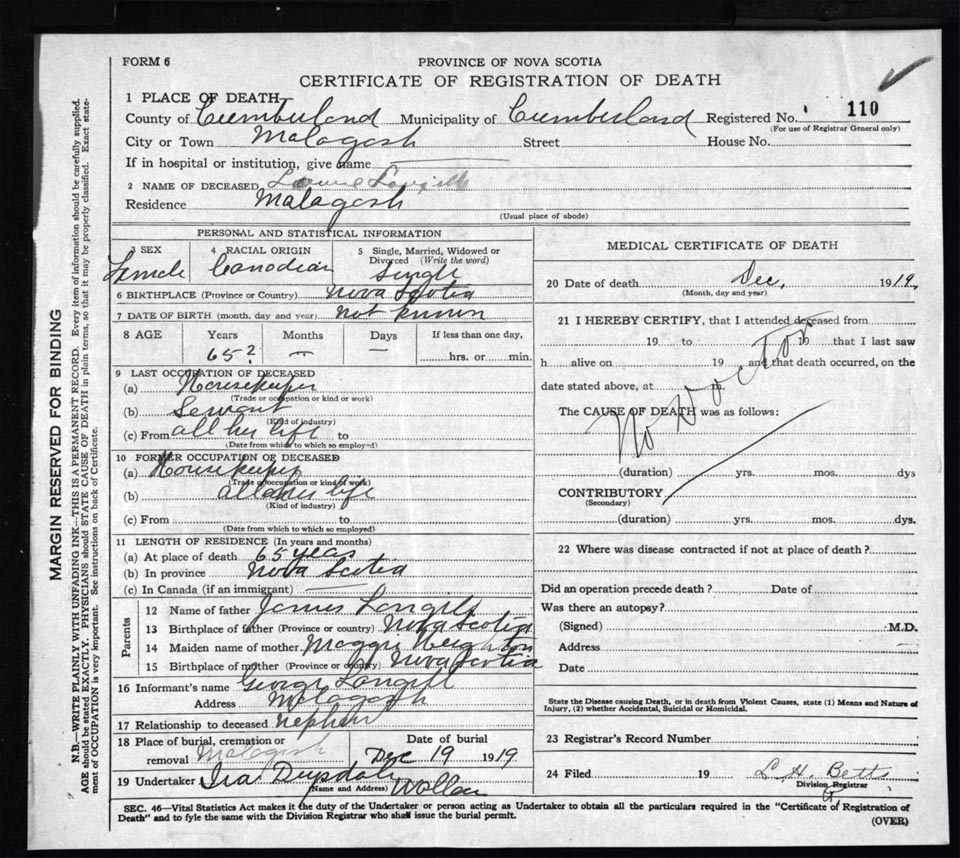 FORM 6
PROVINCE OF NOVA SCOTIA
CERTIFICATE OF REGISTRATION OF DEATH
1 PLACE OF DEATH
County of Cumberland Municipality of Cumberland Registered No. 110
(For use of Registrar General only)
City or Town Malagash Street House No.
If in hospital or institution, give name
2 NAME OF DECEASED Langille
Residence Malagash
(Usual place of abode)
PERSONAL AND STATISTICAL INFORMATION
3 SEX 4 RACIAL ORIGIN 5 Single, Married, Widowed or
Divorced (Write the word)
Female Canadian Single
6 BIRTHPLACE (Province or Country) Nova Scotia
7 DATE OF BIRTH (month, day and year) Not known
8 AGE Years Months Days If less than one day,
65? — — hrs. or min.
9 LAST OCCUPATION OF DECEASED
(a) Housekeeper
(Trade or occupation or kind or work)
(b) Servant
(Kind of industry)
(c) From all her life to
(Date from which to which so employed)
10 FORMER OCCUPATION OF DECEASED
(a) Housekeeper
(Trade or occupation or kind of work)
(b) all her life
(Kind of industry)
(c) From to
(Date from which to which so employed)
11 LENGTH OF RESIDENCE (In years and months)
(a) At place of death 65 years
(b) In province Nova Scotia
(c) In Canada (if an immigrant)
Parents
12 Name of father James Langill
13 Birthplace of father (Province or country) Nova Scotia
14 Maiden name of mother Maggie
15 Birthplace of mother (Province or country) Nova Scotia
16 Informant's name George Langill
Address Malagash
17 Relationship to deceased nephew
18 Place of burial, cremation or Date of burial
removal Malagash Dec 19 1919
19 Undertaker Ira
(Name and Address)
MEDICAL CERTIFICATE OF DEATH
20 Date of death Dec. 1919
(Month, day and year)
21 I HEREBY CERTIFY, that I attended deceased from
19 to 19 that I last saw
h alive on 19 and that death occurred, on the
date stated above, at m.
The CAUSE OF DEATH was as follows:
No Doctor
(duration) yrs. mos. dys
CONTRIBUTORY
(Secondary)
(duration) yrs. mos. dys.
22 Where was disease contracted if not at place of death?
Did an operation precede death? Date of
Was there an autopsy?
(Signed) M.D.
Address
Date
State the Disease causing Death, or in death from Violent Causes, state (1) Means and Nature of
Injury, (2) whether Accidental, Suicidal or Homicidal.
23 Registrar's Record Number
24 Filed 19 L. H. Betts
Division Registrar
SEC. 46—Vital Statistics Act makes it the duty of the Undertaker or person acting as Undertaker to obtain all the particulars required in the "Certificate of Registration of
Death" and to fyle the same with the Division Registrar who shall issue the burial permit.
(OVER)
MARGIN RESERVED FOR BINDING
N.B.—WRITE PLAINLY WITH UNFADING INK—THIS IS A PERMANENT RECORD. Every item of information should be carefully supplied.
AGE should be stated EXACTLY. PHYSICIANS should STATE CAUSE OF DEATH in plain terms, so that it may be properly classified. Exact state-
ment of OCCUPATION is very important. See instructions on back of Certificate.